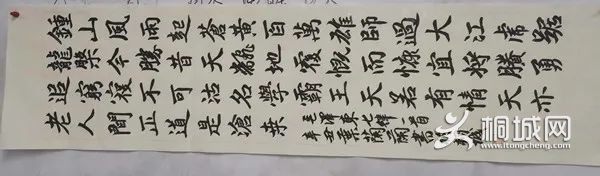 鍾山風雨起蒼黃百萬雄師過大江虎踞
龍槃今勝昔天飜地覆慨而慷宜將賸勇
追窮寇不可沽名學霸王天若有情天亦
老人間正道是滄桒
毛澤東七律一首
辛丑葉蘭蘭書
桐城网
www.itongcheng.com